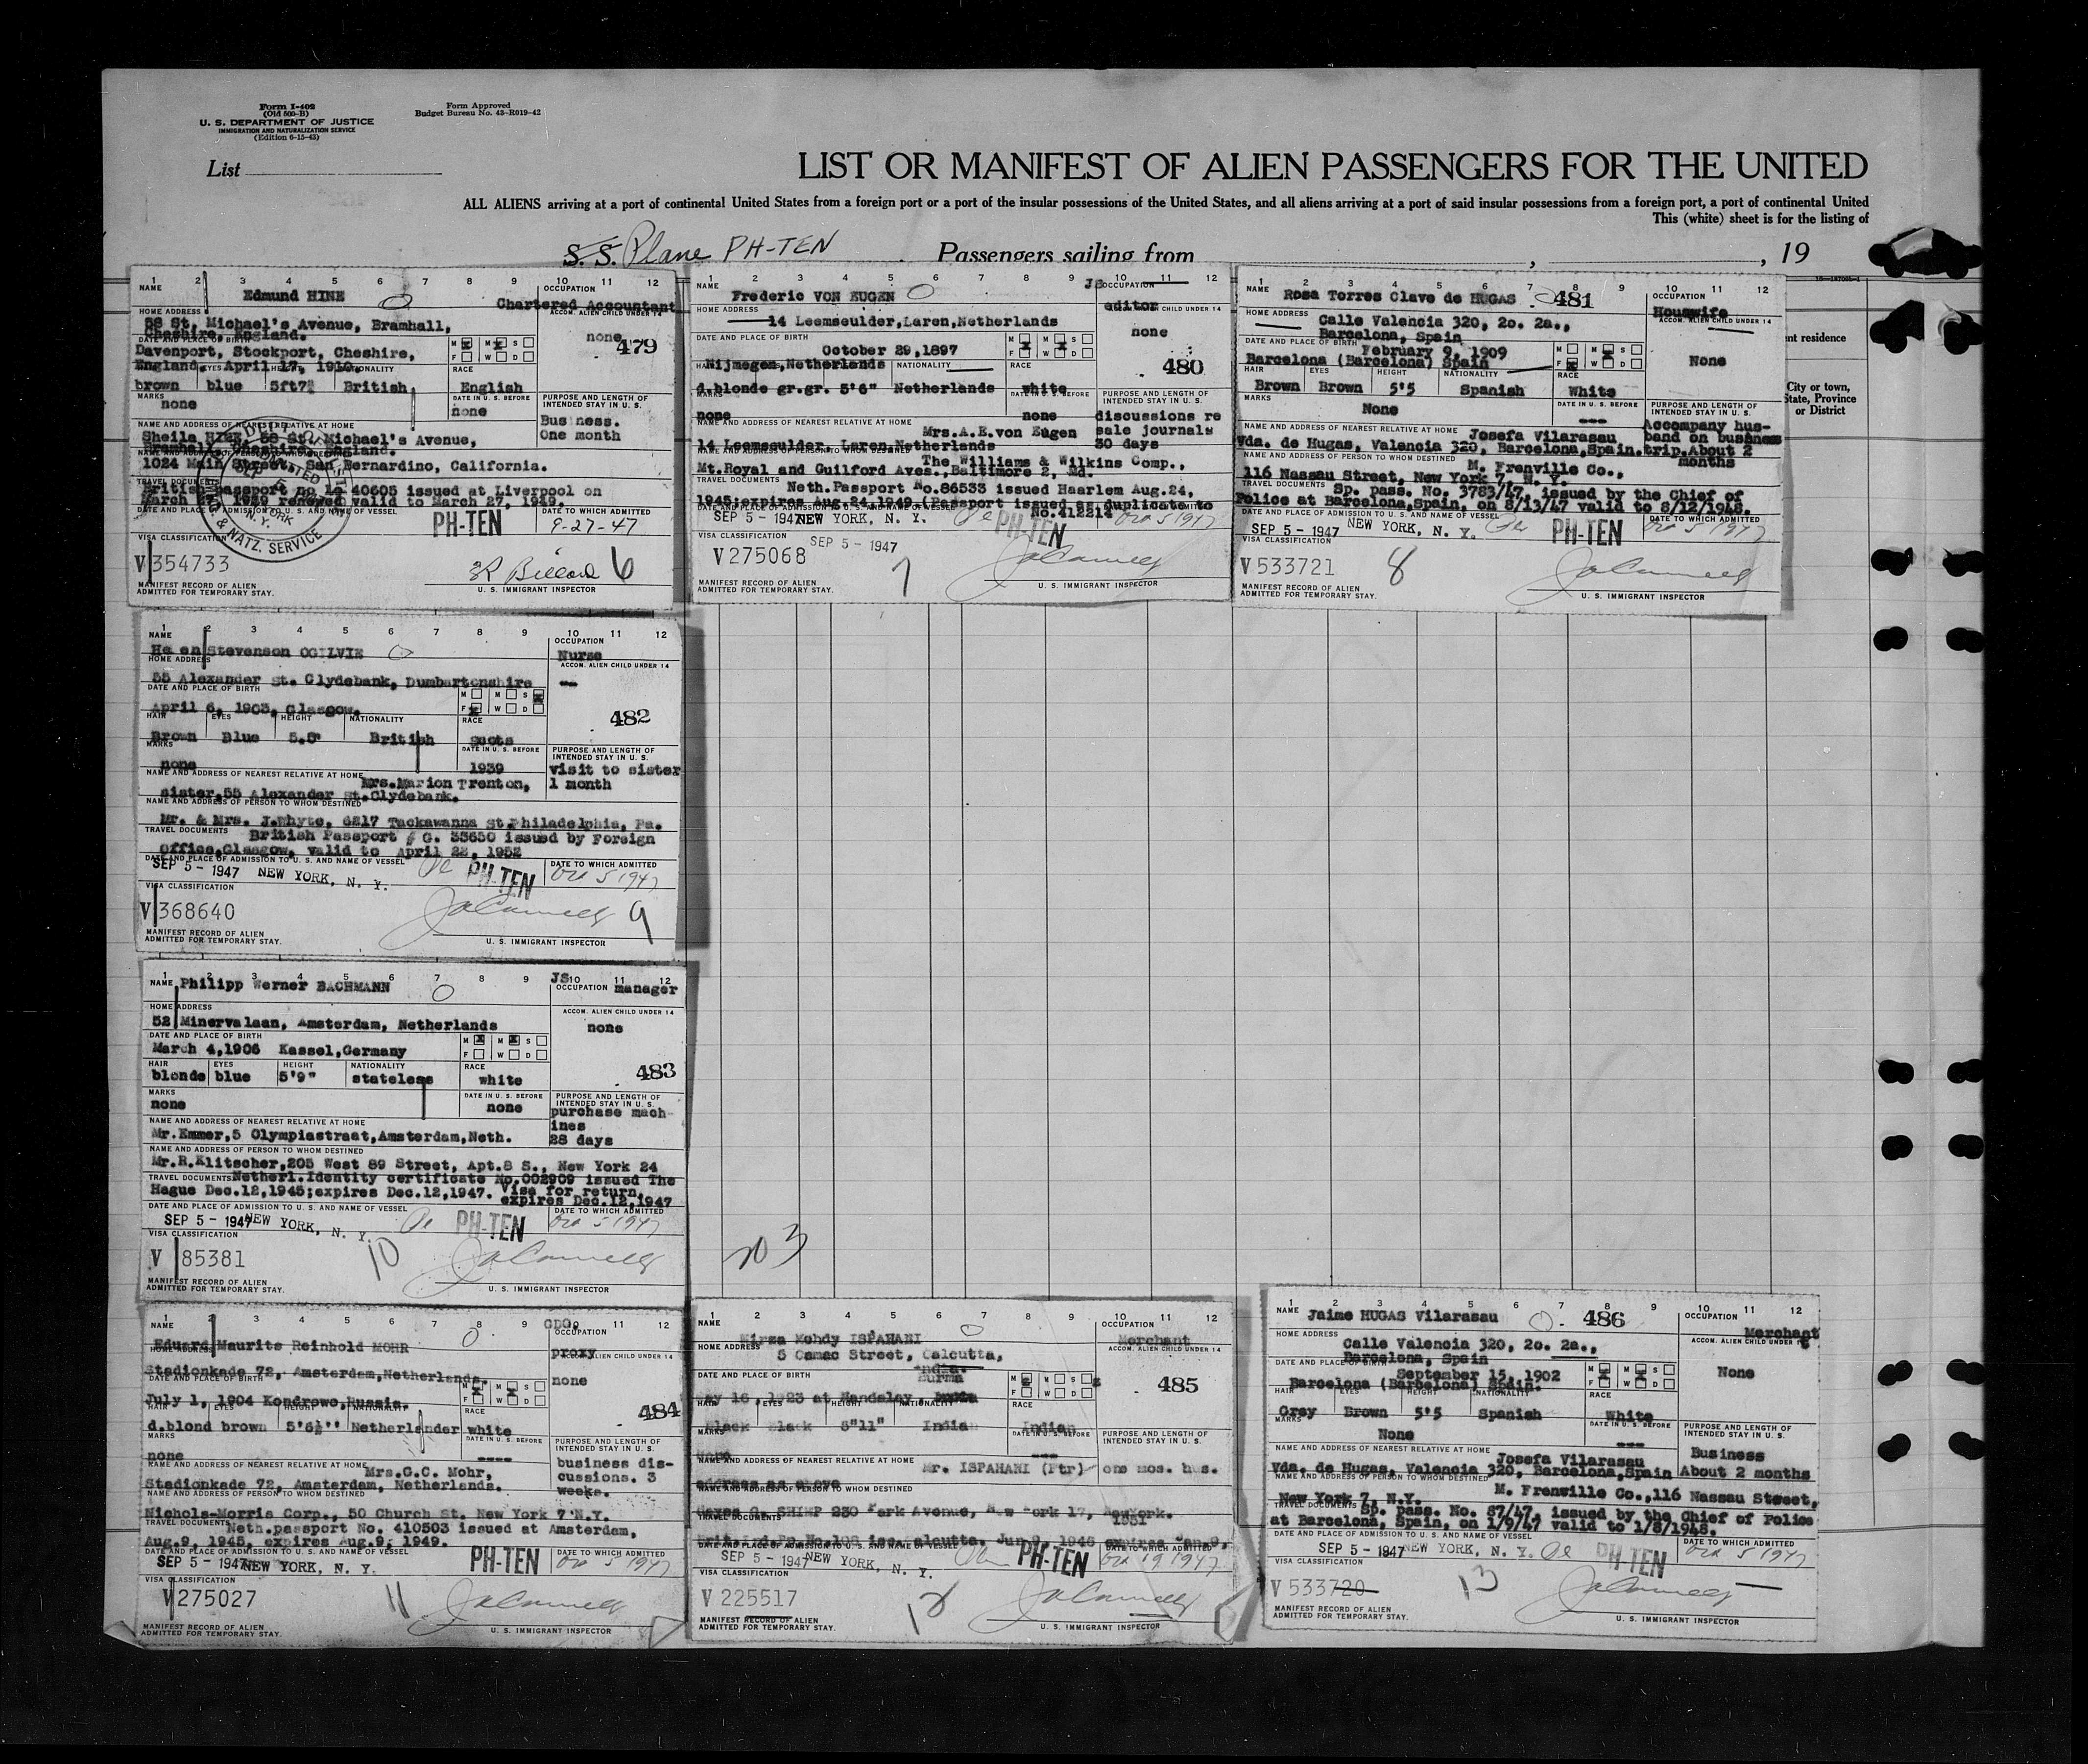 Form I-402
(Old 500-B)
U. S. DEPARTMENT OF JUSTICE
IMMIGRATION AND NATURALIZATION SERVICE
(Edition 6-15-43)
Form Approved
Budget Bureau No. 43-R019-42
List
LIST OR MANIFEST OF ALIEN PASSENGERS FOR THE UNITED
ALL ALIENS arriving at a port of continental United States from a foreign port or a port of the insular possessions of the United States, and all aliens arriving at a port of said insular possessions from a foreign port, a port of continental United
This (white) sheet is for the listing of
S. S. Plane PH-TEN Passengers sailing from , , 19
nt residence
City or town,
State, Province
or District
1 2 3 4 5 6 7 8 9 10 11 12
NAME Edmund HINE
OCCUPATION Chartered Accountant
HOME ADDRESS
ACCOM. ALIEN CHILD UNDER 14
58 St. Michael's Avenue, Bramhall,
Cheshire, England.
none
479
DATE AND PLACE OF BIRTH
Davenport, Stockport, Cheshire,
England, April 17,
M M S
F W D
HAIR EYES HEIGHT NATIONALITY RACE
brown blue 5ft7½ British English
MARKS none
DATE IN U. S. BEFORE none
PURPOSE AND LENGTH OF
INTENDED STAY IN U. S.
Business.
One month
NAME AND ADDRESS OF NEAREST RELATIVE AT HOME
Sheila HINE, 58 St. Michael's Avenue,
Bramhall, Cheshire, England.
NAME AND ADDRESS OF PERSON TO WHOM DESTINED
1024 Main Street, San Bernardino, California.
TRAVEL DOCUMENTS
British passport no 40605 issued at Liverpool on
March 27, renewed valid to March 27, 1949.
DATE AND PLACE OF ADMISSION TO U. S. AND NAME OF VESSEL
PH-TEN
DATE TO WHICH ADMITTED
9-27-47
& NATZ. SERVICE
VISA CLASSIFICATION
V 354733
6
MANIFEST RECORD OF ALIEN
ADMITTED FOR TEMPORARY STAY.
U. S. IMMIGRANT INSPECTOR
1 2 3 4 5 6 7 8 9 10 11 12
NAME Frederic VON EUGEN
JS
OCCUPATION
editor
HOME ADDRESS
ACCOM. ALIEN CHILD UNDER 14
14 Leemseulder, Laren, Netherlands
none
DATE AND PLACE OF BIRTH
October 29, 1897
M M S
F W D
Nijmegen, Netherlands
480
HAIR NATIONALITY RACE
d.blonde gr.gr. 5'6" Netherlands white
MARKS
none
DATE IN U. S. BEFORE
none
PURPOSE AND LENGTH OF
INTENDED STAY IN U. S.
discussions re
sale journals
30 days
NAME AND ADDRESS OF NEAREST RELATIVE AT HOME
Mrs.A.E.von Eugen
14 Leemseulder, Laren, Netherlands
NAME AND ADDRESS OF PERSON TO WHOM DESTINED
The Williams & Wilkins Comp.,
Mt.Royal and Guilford Aves., Baltimore 2, Md.
TRAVEL DOCUMENTS
Neth.Passport No.86533 issued Haarlem Aug.24,
1945;expires Aug.24,1949.(Passport issued as duplicate to
No.412214
DATE AND PLACE OF ADMISSION TO U. S. AND NAME OF VESSEL
SEP 5 - 1947 NEW YORK, N. Y.
PH-TEN
Oct 5 1947
VISA CLASSIFICATION
SEP 5 - 1947
V 275068
7
MANIFEST RECORD OF ALIEN
ADMITTED FOR TEMPORARY STAY.
U. S. IMMIGRANT INSPECTOR
1 2 3 4 5 6 7 8 9 10 11 12
NAME Rosa Torres Clave de HUGAS 481
OCCUPATION
Housewife
HOME ADDRESS
ACCOM. ALIEN CHILD UNDER 14
Calle Valencia 320, 2o. 2a.,
Barcelona, Spain
DATE AND PLACE OF BIRTH
February 9, 1909
Barcelona (Barcelona) Spain
None
M M S
F W D
HAIR EYES HEIGHT NATIONALITY RACE
Brown Brown 5'5 Spanish White
MARKS
None
DATE IN U. S. BEFORE
---
PURPOSE AND LENGTH OF
INTENDED STAY IN U. S.
Accompany hus-
band on business
trip.About 2
months
NAME AND ADDRESS OF NEAREST RELATIVE AT HOME
Josefa Vilarasau
Vda. de Hugas, Valencia 320, Barcelona,Spain.
NAME AND ADDRESS OF PERSON TO WHOM DESTINED
M. Frenville Co.,
116 Nassau Street, New York 7, N. Y.
TRAVEL DOCUMENTS
Sp. pass. No. 3783/47, issued by the Chief of
Police at Barcelona,Spain, on 8/13/47 valid to 8/12/1948.
DATE AND PLACE OF ADMISSION TO U. S. AND NAME OF VESSEL
SEP 5 - 1947 NEW YORK, N. Y.
PH-TEN
DATE TO WHICH ADMITTED
Oct 5 1947
VISA CLASSIFICATION
V 533721
8
MANIFEST RECORD OF ALIEN
ADMITTED FOR TEMPORARY STAY.
U. S. IMMIGRANT INSPECTOR
1 2 3 4 5 6 7 8 9 10 11 12
NAME
Stevenson OGILVIE
OCCUPATION
Nurse
HOME ADDRESS
ACCOM. ALIEN CHILD UNDER 14
55 Alexander St. Clydebank, Dumbartonshire
DATE AND PLACE OF BIRTH
April 6, 1903, Glasgow.
M M S
F W D
482
HAIR EYES HEIGHT NATIONALITY RACE
Brown Blue 5.5" British Scots
MARKS
none
DATE IN U. S. BEFORE
1939
PURPOSE AND LENGTH OF
INTENDED STAY IN U. S.
visit to sister
1 month
NAME AND ADDRESS OF NEAREST RELATIVE AT HOME
Mrs.Marion Trenton,
sister,55 Alexander St.Clydebank.
NAME AND ADDRESS OF PERSON TO WHOM DESTINED
Mr. & Mrs. J.Whyte, 6217 Tackawanna St.Philadelphia, Pa.
TRAVEL DOCUMENTS
British Passport # G. 33650 issued by Foreign
Office,Glasgow, valid to April 22, 1952
DATE AND PLACE OF ADMISSION TO U. S. AND NAME OF VESSEL
SEP 5 - 1947 NEW YORK, N. Y.
PH-TEN
DATE TO WHICH ADMITTED
Oct 5 1947
VISA CLASSIFICATION
V 368640
9
MANIFEST RECORD OF ALIEN
ADMITTED FOR TEMPORARY STAY.
U. S. IMMIGRANT INSPECTOR
1 2 3 4 5 6 7 8 9 10 11 12
NAME Philipp Werner BACHMANN
JS
OCCUPATION manager
HOME ADDRESS
ACCOM. ALIEN CHILD UNDER 14
52 Minervalaan, Amsterdam, Netherlands
none
DATE AND PLACE OF BIRTH
March 4,1906 Kassel,Germany
M M S
F W D
HAIR EYES HEIGHT NATIONALITY RACE
blonde blue 5'9" stateless white
483
MARKS
none
DATE IN U. S. BEFORE
none
PURPOSE AND LENGTH OF
INTENDED STAY IN U. S.
purchase mach-
ines
28 days
NAME AND ADDRESS OF NEAREST RELATIVE AT HOME
Mr.Emmer,5 Olympiastraat,Amsterdam,Neth.
NAME AND ADDRESS OF PERSON TO WHOM DESTINED
Mr.R.Klitscher,205 West 89 Street, Apt.8 S., New York 24
TRAVEL DOCUMENTS Netherl.Identity certificate No.002909 issued The
Hague Dec.12,1945;expires Dec.12,1947. Visa for return,
expires Dec.12,1947
DATE AND PLACE OF ADMISSION TO U. S. AND NAME OF VESSEL
SEP 5 - 1947 NEW YORK, N. Y.
PH-TEN
DATE TO WHICH ADMITTED
Oct 5 1947
VISA CLASSIFICATION
V 85381
10
MANIFEST RECORD OF ALIEN
ADMITTED FOR TEMPORARY STAY.
U. S. IMMIGRANT INSPECTOR
1 2 3 4 5 6 7 8 9 10 11 12
NAME
Eduard Maurits Reinhold MOHR
OCCUPATION
proxy
HOME ADDRESS
ACCOM. ALIEN CHILD UNDER 14
Stadionkade 72, Amsterdam,Netherlands.
none
DATE AND PLACE OF BIRTH
July 1, 1904 Kondrowo,Russia.
M M S
F W D
484
HAIR EYES HEIGHT NATIONALITY RACE
d.blond brown 5'6½'' Netherlander white
MARKS
none
DATE IN U. S. BEFORE
----
PURPOSE AND LENGTH OF
INTENDED STAY IN U. S.
business dis-
cussions. 3
weeks.
NAME AND ADDRESS OF NEAREST RELATIVE AT HOME
Mrs.G.C. Mohr,
Stadionkade 72, Amsterdam, Netherlands.
NAME AND ADDRESS OF PERSON TO WHOM DESTINED
Nichols-Morris Corp., 50 Church St. New York 7 N.Y.
TRAVEL DOCUMENTS
Neth.passport No. 410503 issued at Amsterdam,
Aug.9, 1945, expires Aug.9, 1949.
DATE AND PLACE OF ADMISSION TO U. S. AND NAME OF VESSEL
SEP 5 - 1947 NEW YORK, N. Y.
PH-TEN
DATE TO WHICH ADMITTED
Oct 5 1947
VISA CLASSIFICATION
V 275027
11
MANIFEST RECORD OF ALIEN
ADMITTED FOR TEMPORARY STAY.
U. S. IMMIGRANT INSPECTOR
1 2 3 4 5 6 7 8 9 10 11 12
NAME
Mirza Mehdy ISPAHANI
OCCUPATION
Merchant
HOME ADDRESS
ACCOM. ALIEN CHILD UNDER 14
5 Camac Street, Calcutta,
India.
DATE AND PLACE OF BIRTH
Burma
May 16, 1923 at Mandalay,
M M S
F W D
485
HAIR EYES HEIGHT NATIONALITY RACE
Black Black 5"11" India Indian
MARKS
None
DATE IN U. S. BEFORE
---
PURPOSE AND LENGTH OF
INTENDED STAY IN U. S.
one mos. bus.
NAME AND ADDRESS OF NEAREST RELATIVE AT HOME
Mr. ISPAHANI (Ftr)
address as above
NAME AND ADDRESS OF PERSON TO WHOM DESTINED
230 Park Avenue, New York 17, NewYork.
TRAVEL DOCUMENTS
1951
DATE AND PLACE OF ADMISSION TO U. S. AND NAME OF
SEP 5 - 1947 NEW YORK, N. Y.
PH-TEN
DATE TO WHICH ADMITTED
Oct 19 1947
VISA CLASSIFICATION
V 225517
12
MANIFEST RECORD OF ALIEN
ADMITTED FOR TEMPORARY STAY.
U. S. IMMIGRANT INSPECTOR
1 2 3 4 5 6 7 8 9 10 11 12
NAME Jaime HUGAS Vilarasau 486
OCCUPATION
Merchant
HOME ADDRESS
ACCOM. ALIEN CHILD UNDER 14
Calle Valencia 320, 2o. 2a.,
Barcelona, Spain
None
DATE AND PLACE OF BIRTH
September 15, 1902
Barcelona (Barcelona) Spain.
M M S
F W D
HAIR EYES HEIGHT NATIONALITY RACE
Grey Brown 5'5 Spanish White
MARKS
None
DATE IN U. S. BEFORE
---
PURPOSE AND LENGTH OF
INTENDED STAY IN U. S.
Business
About 2 months
NAME AND ADDRESS OF NEAREST RELATIVE AT HOME
Josefa Vilarasau
Vda. de Hugas, Valencia 320, Barcelona,Spain
NAME AND ADDRESS OF PERSON TO WHOM DESTINED
M. Frenville Co.,116 Nassau Street,
New York 7, N.Y.
TRAVEL DOCUMENTS
Sp. pass. No. 87/47, issued by the Chief of Police
at Barcelona, Spain, on 1/9/47 valid to 1/8/1948.
DATE AND PLACE OF ADMISSION TO U. S. AND NAME OF VESSEL
SEP 5 - 1947 NEW YORK, N. Y.
PH-TEN
DATE TO WHICH ADMITTED
Oct 5 1947
VISA CLASSIFICATION
V 533720
13
MANIFEST RECORD OF ALIEN
ADMITTED FOR TEMPORARY STAY.
U. S. IMMIGRANT INSPECTOR